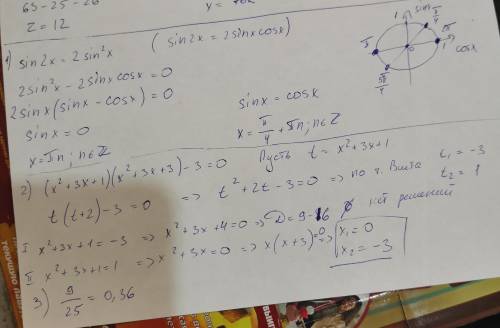 65 - 25 - 28
z = 12
1) sin2x = 2sin²x (sin2x = 2sinxcosx)
2sin²x - 2sinxcosx = 0
2sinx(sinx - cosx) = 0
sinx = 0 sinx = cosx
x = πn; n∈Z x = π/4 + πn; n∈Z
sinx
1
π/4
π
0
2π
1
cosx
5π/4
2) (x² + 3x + 1)(x² + 3x + 3) - 3 = 0 Пусть t = x² + 3x + 1
t(t + 2) - 3 = 0 => t² + 2t - 3 = 0 => по т. Виета t₁ = -3
t₂ = 1
I x² + 3x + 1 = -3 => x² + 3x + 4 = 0 => D = 9 - 16 нет решений
II x² + 3x + 1 = 1 => x² + 3x = 0 => x(x + 3) = 0 => x₁ = 0
x₂ = -3
3) 9/25 = 0,36